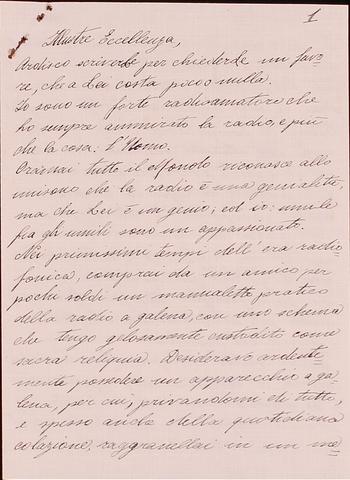 1
Illustre Eccellenza,
Ardisco scriverle per chiederle un favo-
re, che a Lei costa poco o nulla.
Io sono un forte radioamatore che
ho sempre ammirato la radio, e più
che la cosa: l'Uomo.
Oramai tutto il Mondo riconosce allo
unisono che la radio è una genialità,
ma che Lei è un genio; ed io: umile
fra gli umili sono un appassionato.
Nei primissimi tempi dell'era radio-
fonica, comprai da un amico per
pochi soldi un manualetto pratico
della radio a galena, con uno schema
che tengo gelosamente custodito come
sacra reliquia. Desideravo ardente-
mente possedere un apparecchio a ga-
lena, per cui, privandomi di tutto,
e spesso anche della quotidiana
colazione, raggranellai in un me-